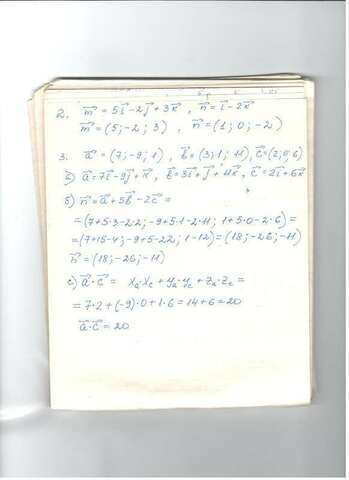 2. m⃗ = 5i⃗ - 2j⃗ + 3k⃗ , n⃗ = i⃗ - 2k⃗
m⃗ = (5; -2; 3) , n⃗ = (1; 0; -2)
3. a⃗ = (7; -9; 1) , b⃗ = (3; 1; 11), c⃗ = (2; 0; 6)
a⃗ = 7i⃗ - 9j⃗ + k⃗ , b⃗ = 3i⃗ + j⃗ + 11k⃗ , c⃗ = 2i⃗ + 6k⃗
б) n⃗ = a⃗ + 5b⃗ - 2c⃗ =
= (7+5·3-2·2; -9+5·1-2·11; 1+5·0-2·6) =
= (7+15-4; -9+5-22; 1-12) = (18; -26; -11)
n⃗ = (18; -26; -11)
c) a⃗·c⃗ = xₐ·x_c + yₐ·y_c + zₐ·z_c =
= 7·2 + (-9)·0 + 1·6 = 14+6 = 20
a⃗·c⃗ = 20